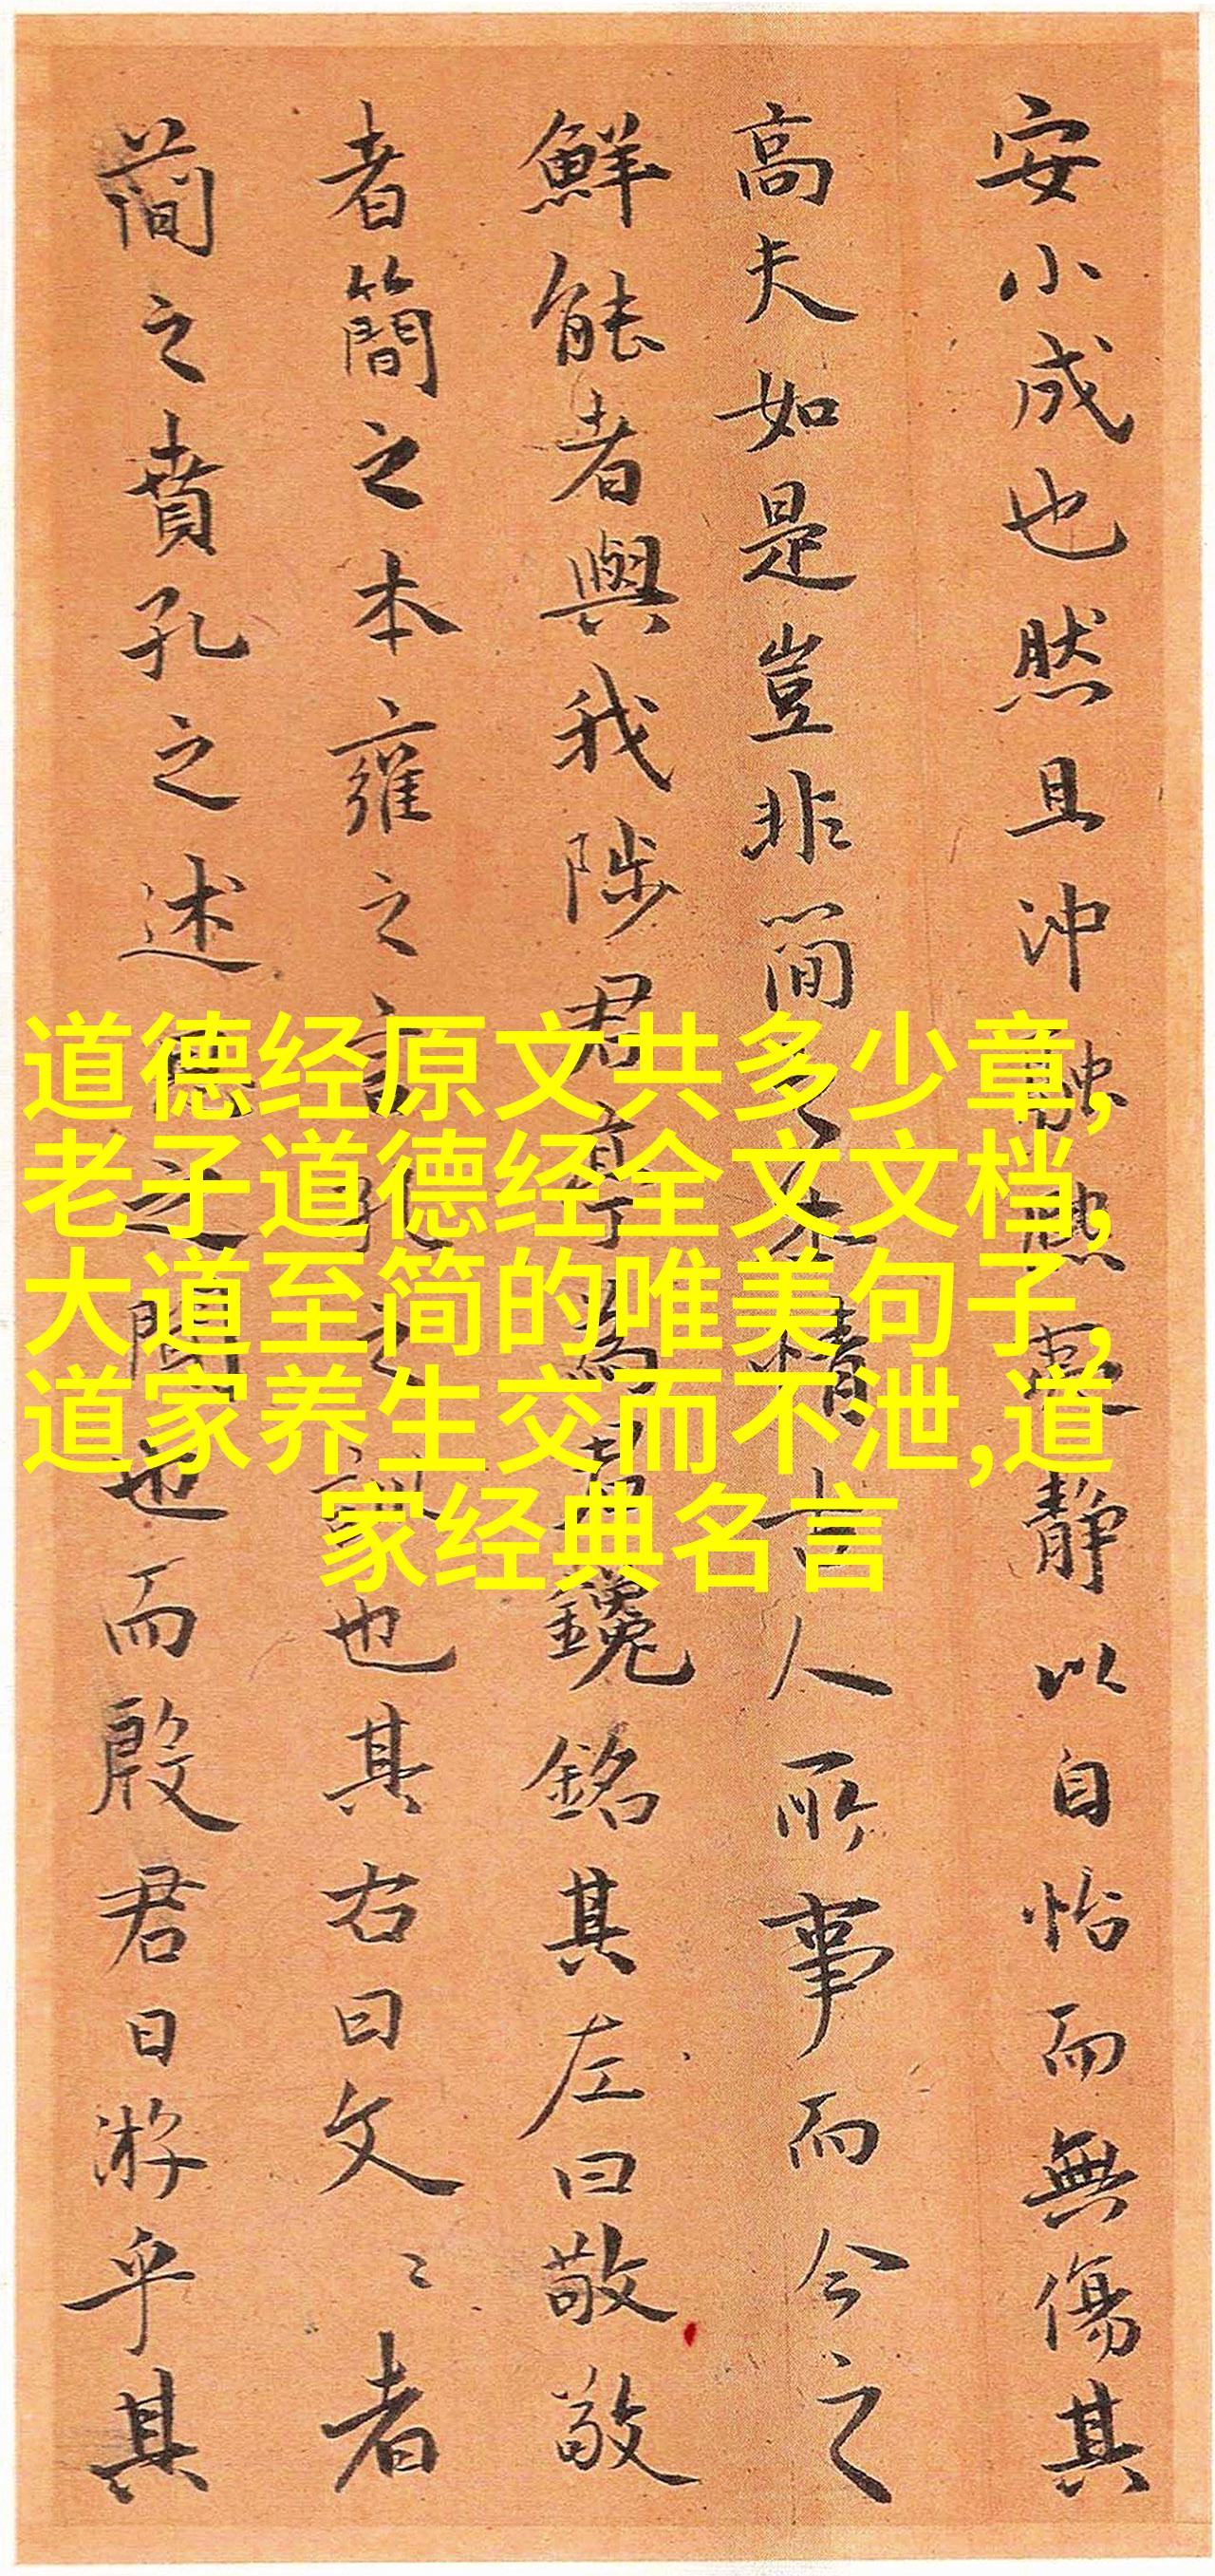 安小成也然且沖融靜以自怡而無傷其
高夫如是豈非簡之本情古人所事而今之
鮮能者與我陟君為君鑱銘其左曰敬敬
者簡之本雍之言孔之訓也其右曰文〻者
簡之賁孔之述之聞也而殷君日游乎其
道德经原文共多少章,
老子道德经全文文档,
大道至简的唯美句子,
道家养生交而不泄,道
家经典名言